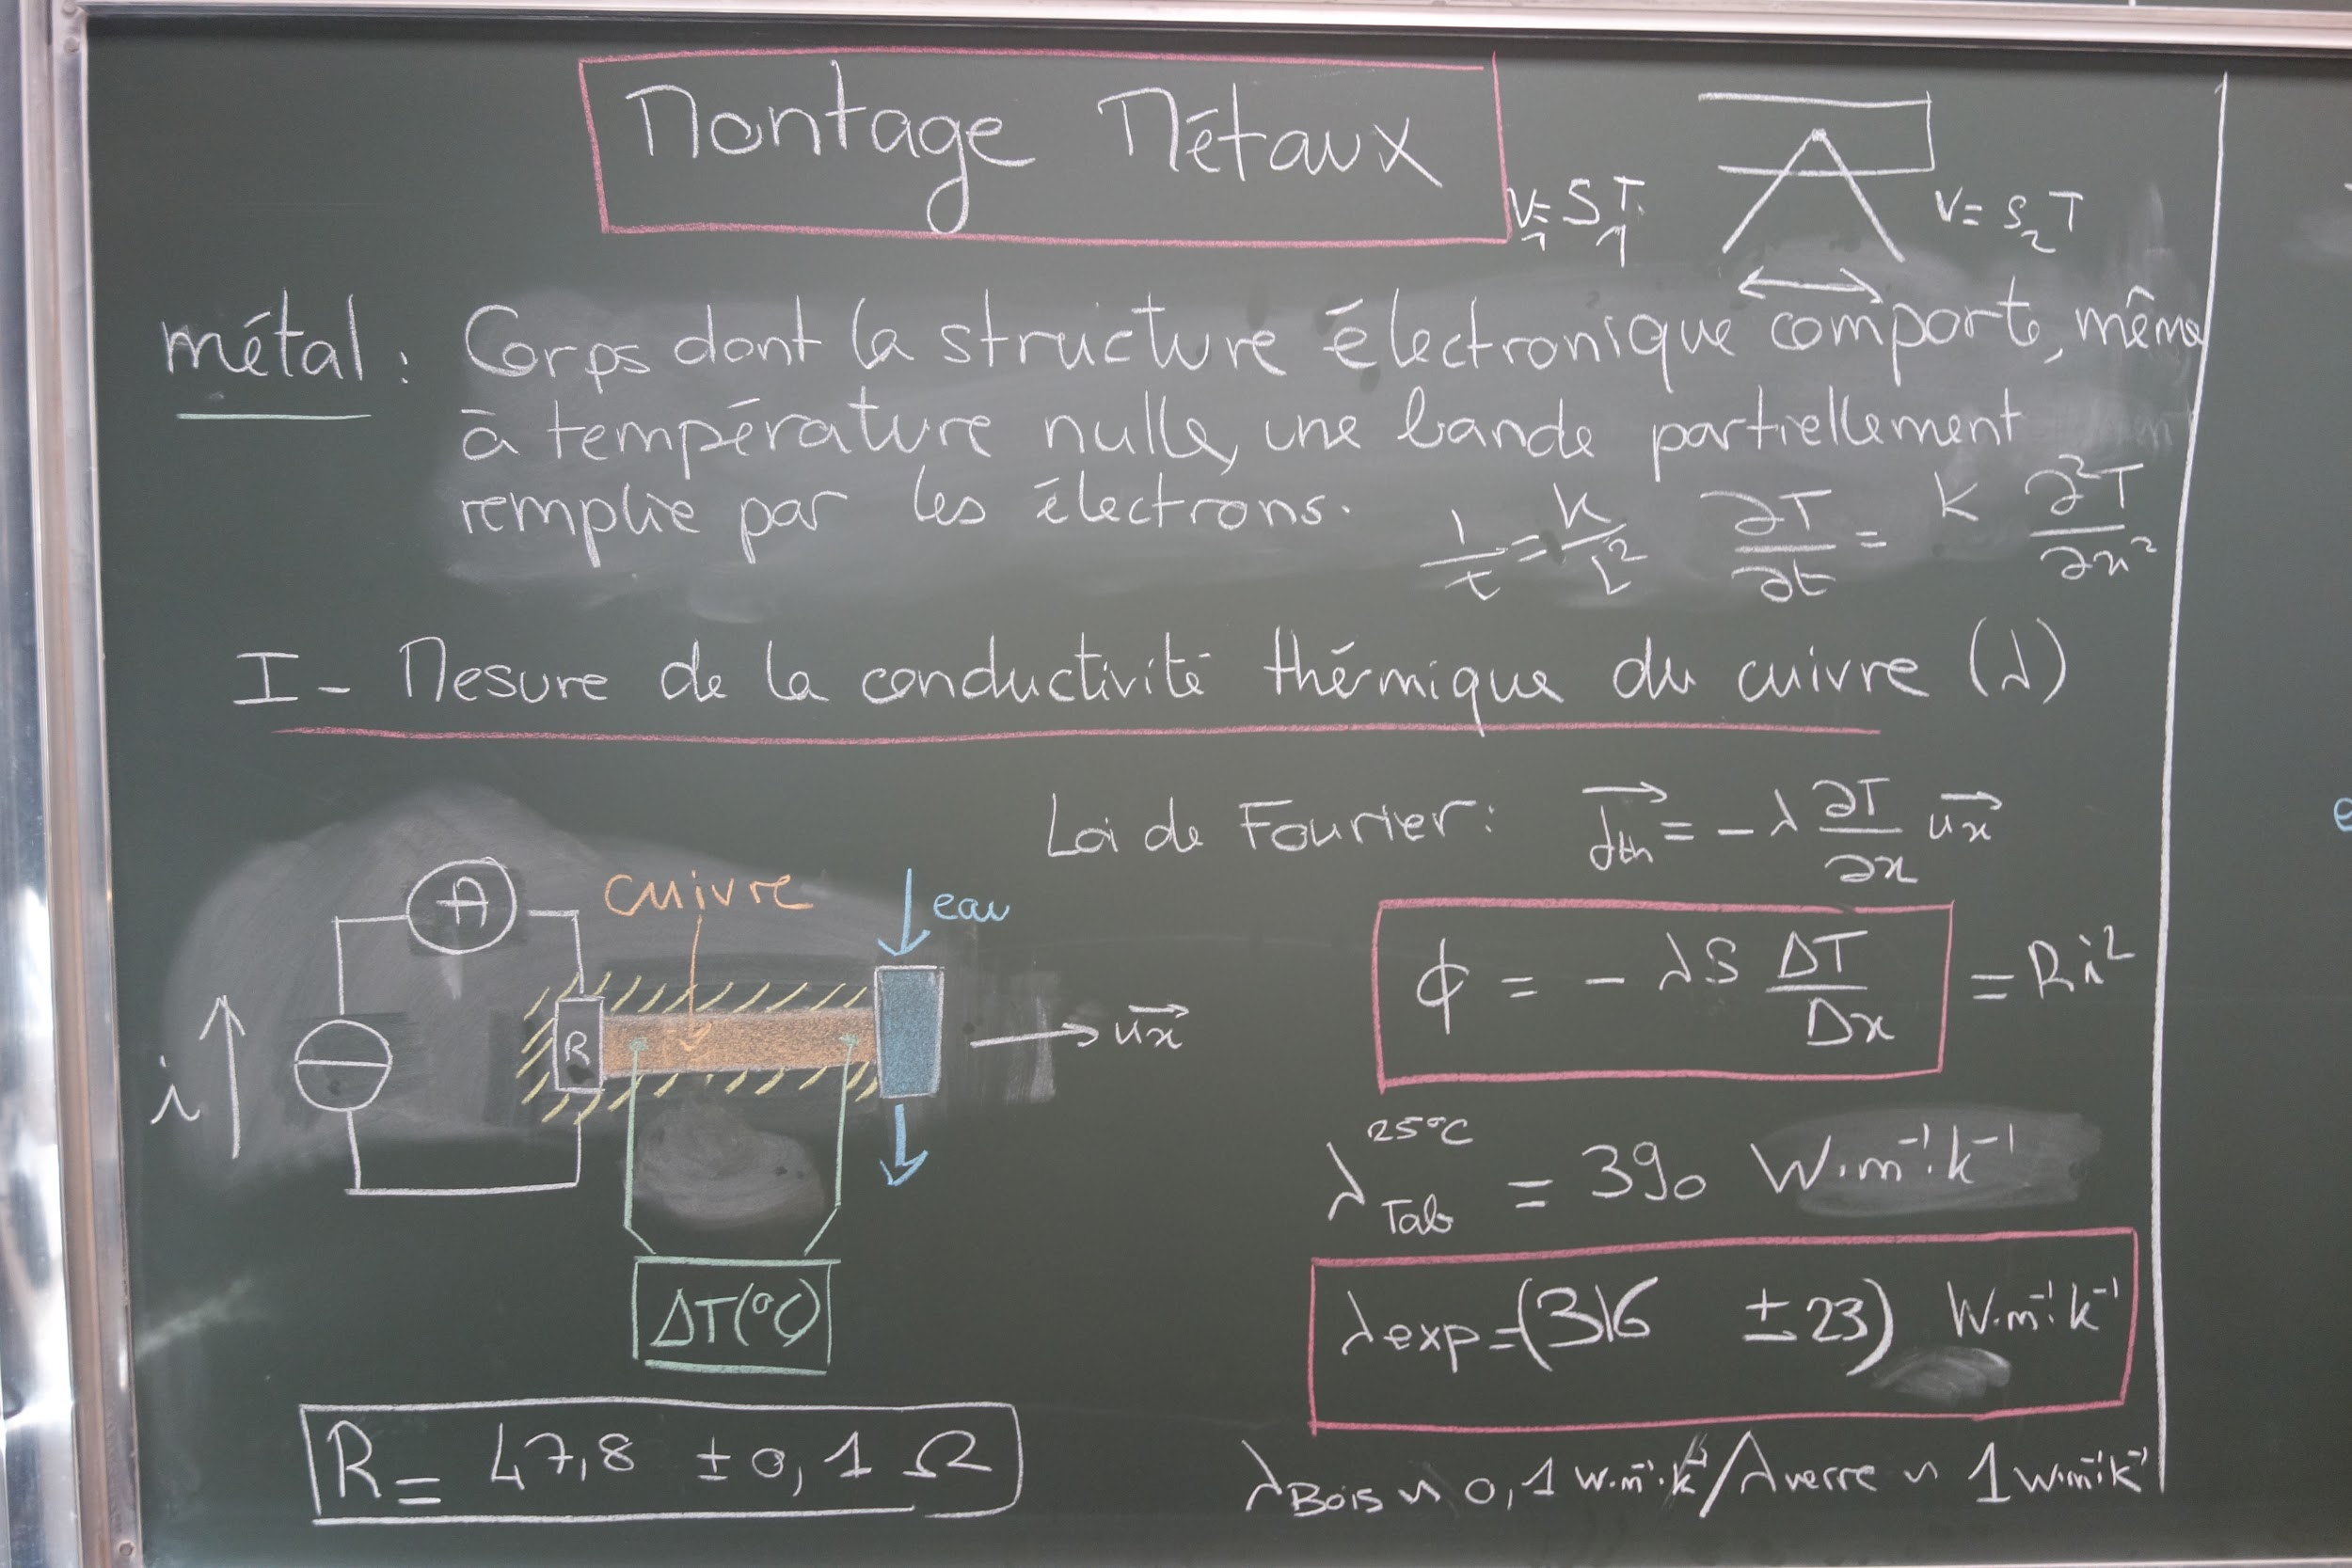 Montage Métaux
V₁= S₁T
V= S₂T
métal : Corps dont la structure électronique comporte, même
à température nulle, une bande partiellement
remplie par les électrons.
1/τ = K/L² ∂T/∂t = K ∂²T/∂x²
I - Mesure de la conductivité thérmique du cuivre (λ)
Loi de Fourier : j⃗th = - λ ∂T/∂x u⃗x
A
cuivre
eau
i
R
u⃗x
ϕ = - λS ΔT/Δx = Ri²
λTab^25°C = 390 W.m⁻¹.k⁻¹
ΔT(°C)
λexp=(316 ±23) W.m⁻¹.k⁻¹
R = 47,8 ±0,1 Ω
λBois ~ 0,1 W.m⁻¹.k⁻¹/λverre ~ 1 W.m⁻¹.k⁻¹